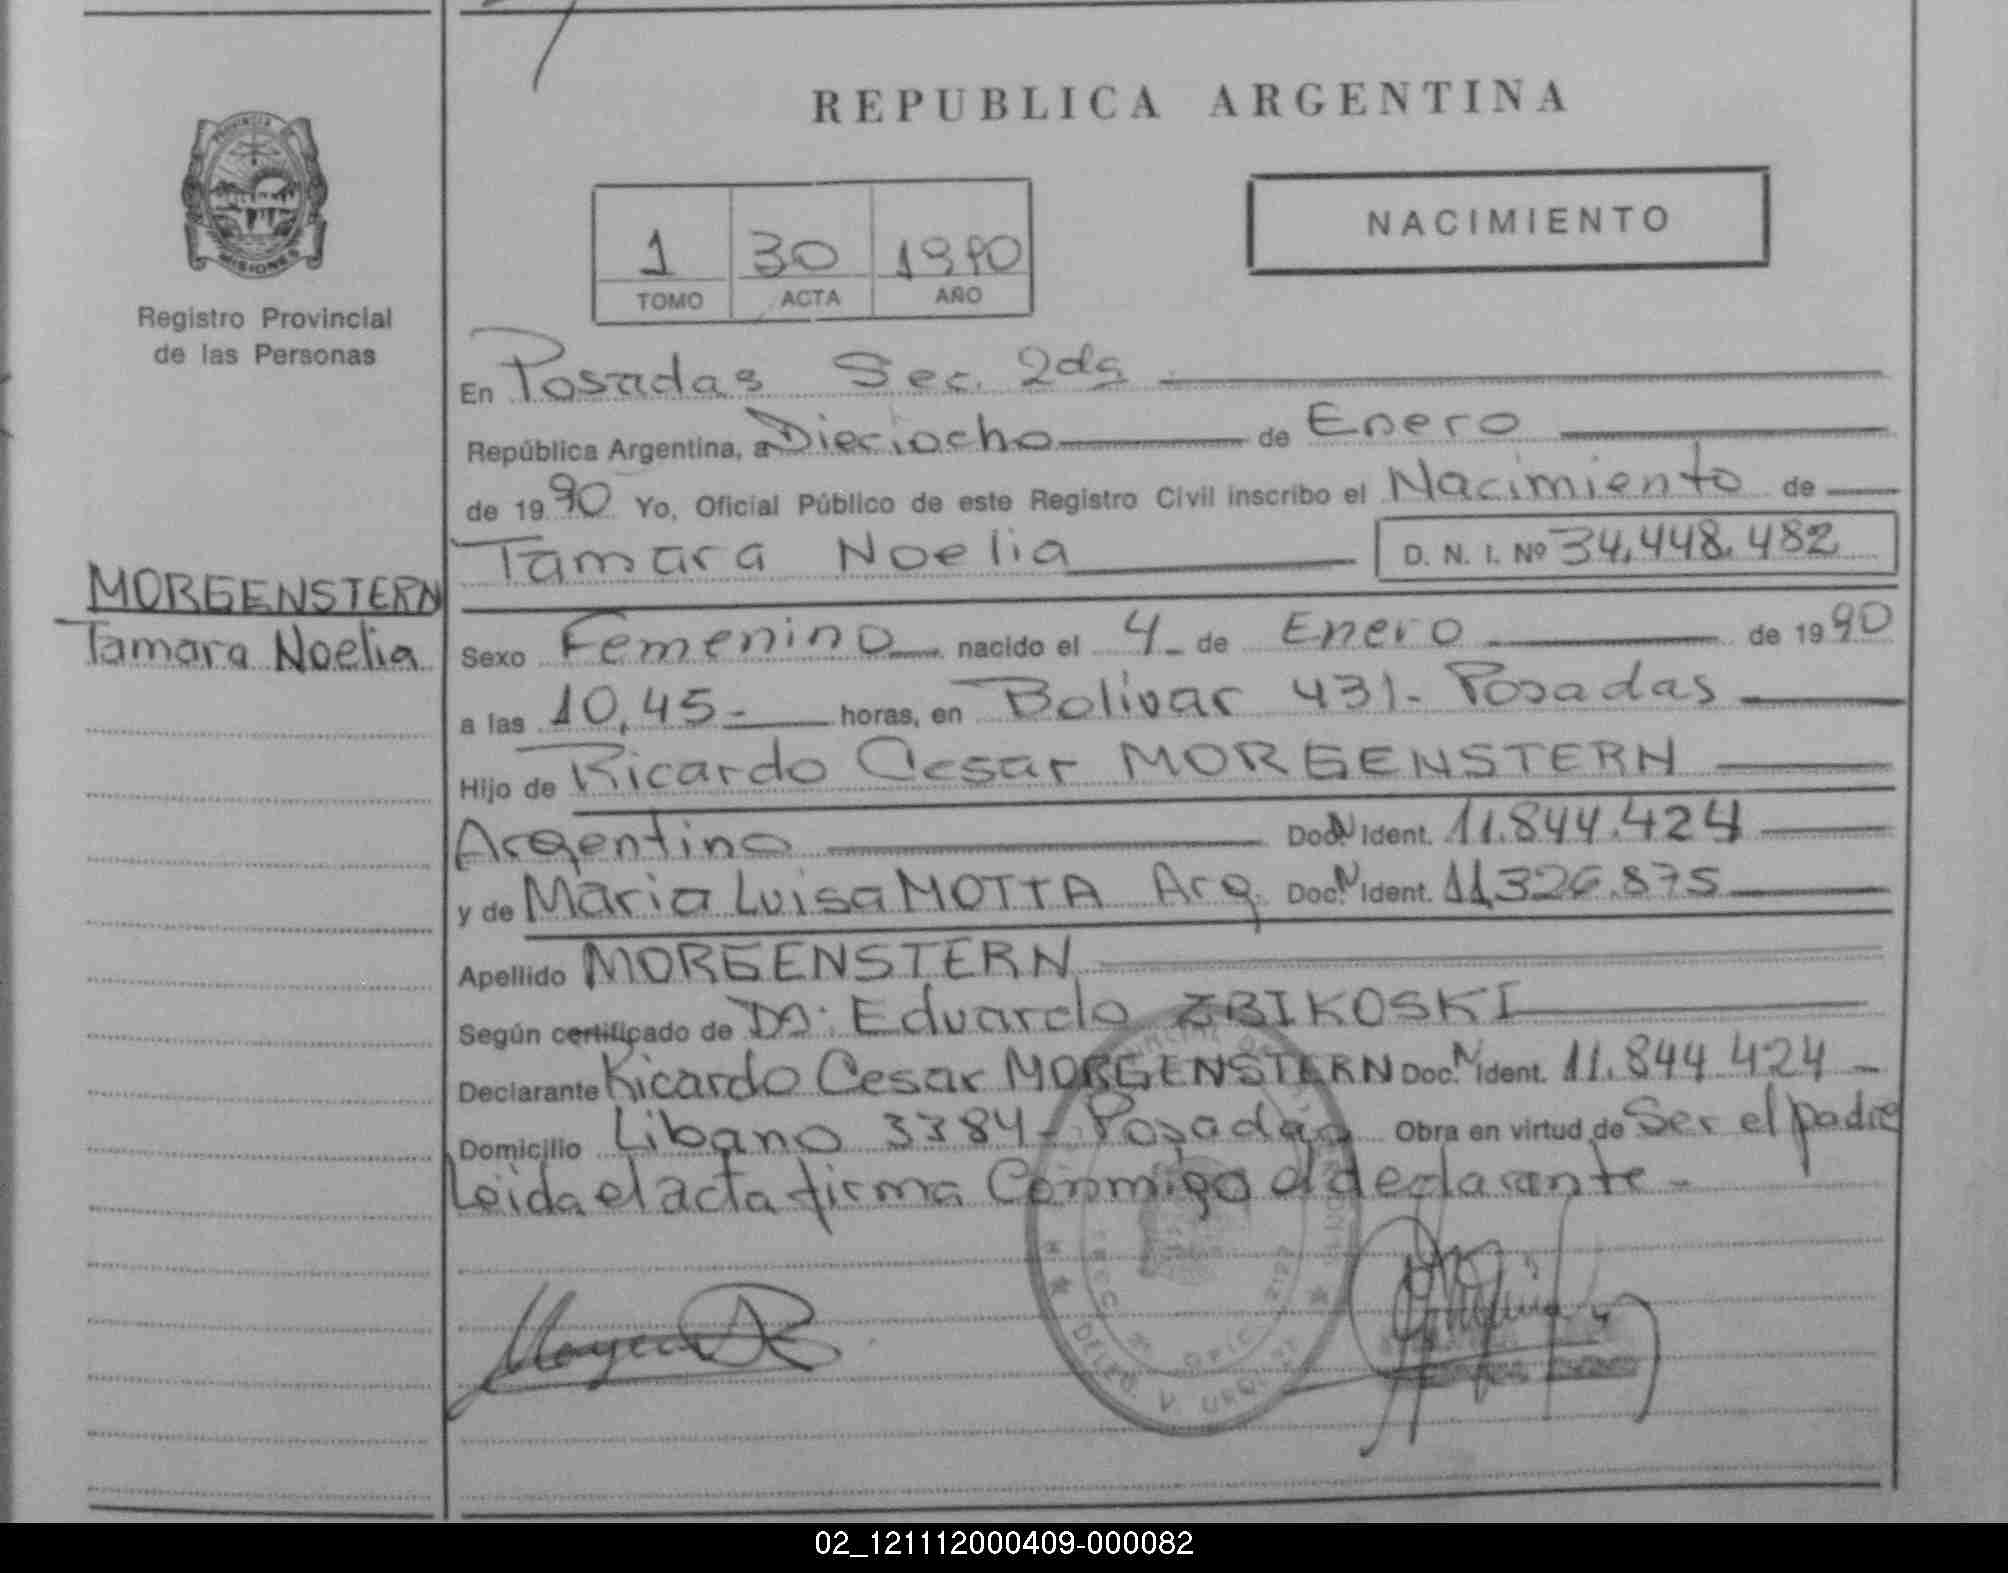 REPUBLICA ARGENTINA
PROVINCIA
MISIONES
Registro Provincial
de las Personas
NACIMIENTO
1 30 1990
TOMO ACTA AÑO
En Posadas Sec. 2da
República Argentina, a Dieciocho de Enero
de 1990 Yo, Oficial Público de este Registro Civil inscribo el Nacimiento de
Tamara Noelia D. N. I. Nº 34.448.482
MORGENSTERN
Tamara Noelia
Sexo Femenino nacido el 4 de Enero de 1990
a las 10,45- horas, en Bolivar 431- Posadas
Hijo de Ricardo Cesar MORGENSTERN
Argentino Doc. N Ident. 11.844.424
y de Maria Luisa MOTTA Arg. Doc. N Ident. 11.326.875
Apellido MORGENSTERN
Según certificado de Dr. Eduardo ZBIKOSKI
Declarante Ricardo Cesar MORGENSTERN Doc. N Ident. 11.844.424-
Domicilio Libano 3384- Posadas Obra en virtud de Ser el padre
Leida el acta firma Conmigo el declarante-
02_121112000409-000082